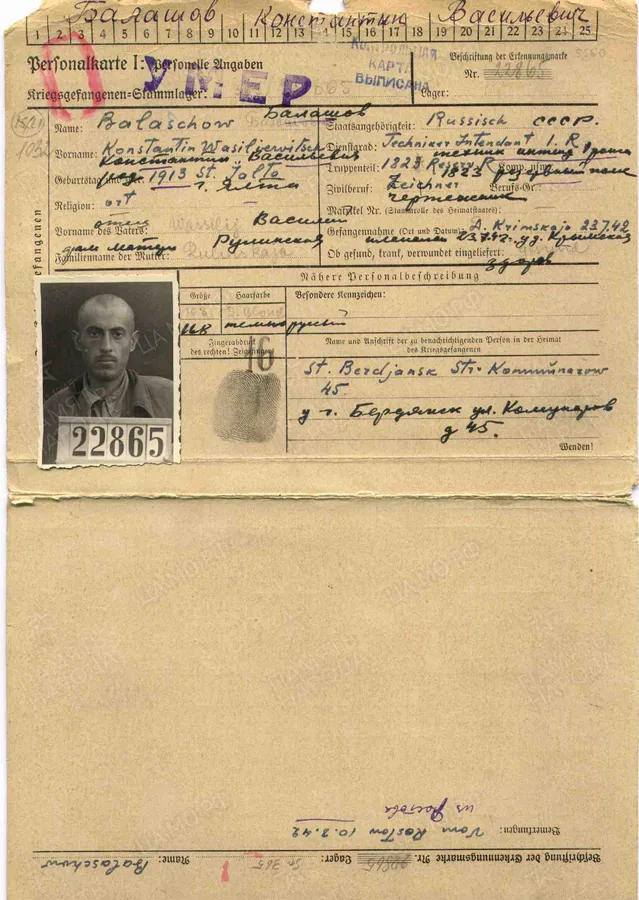 Балашов Константин Васильевич
1 2 3 4 5 6 7 8 9 10 11 12 13 14 15 16 17 18 19 20 21 22 23 24 25
Personalkarte I: Personelle Angaben
УМЕР
КАРТА
ВЫПИСАНА
Beschriftung der Erkennungsmarke
Nr. 22865
Kriegsgefangenen-Stammlager:
Lager:
Балашов
Name: Balaschow
Staatsangehörigkeit: Russisch СССР.
Vorname: Konstantin Wasilierwitsch
Константин Васильевич
Dienstgrad: Techniker Intendant I. R.
Truppenteil: 1823 Reserv R
1823 резервный полк
Geburtstag und 1913 St. Jalta
г. Ялта
Zivilberuf: Zeichner
Berufs-Gr.
чертежник
Religion: ort
отец
Matrikel Nr. (Stammrolle des Heimatstaates):
Vorname des Vaters: Wassilij Василий
Gefangennahme (Ort und Datum): D. Krimskaja 23.7.42
пленен 23.7.42. Крымская
Familienname der Mutter: Rulinskaja
Рулинская
Ob gesund, krank, verwundet eingeliefert:
здоров
Nähere Personalbeschreibung
Größe
Haarfarbe
Besondere Kennzeichen:
темнорусый
Fingerabdruck
des rechten! Zeigefinger
16
Name und Anschrift der zu benachrichtigenden Person in der Heimat
des Kriegsgefangenen
St. Berdjansk Str. Kommunarow
45.
г. Бердянск ул. Комунаров
д 45.
Wenden!
22865
из Ростова
Bemerkungen: Vom Rostow 10.2.42
Beschriftung der Erkennungsmarke Nr. 22865 Lager: 365 Name: Balaschow